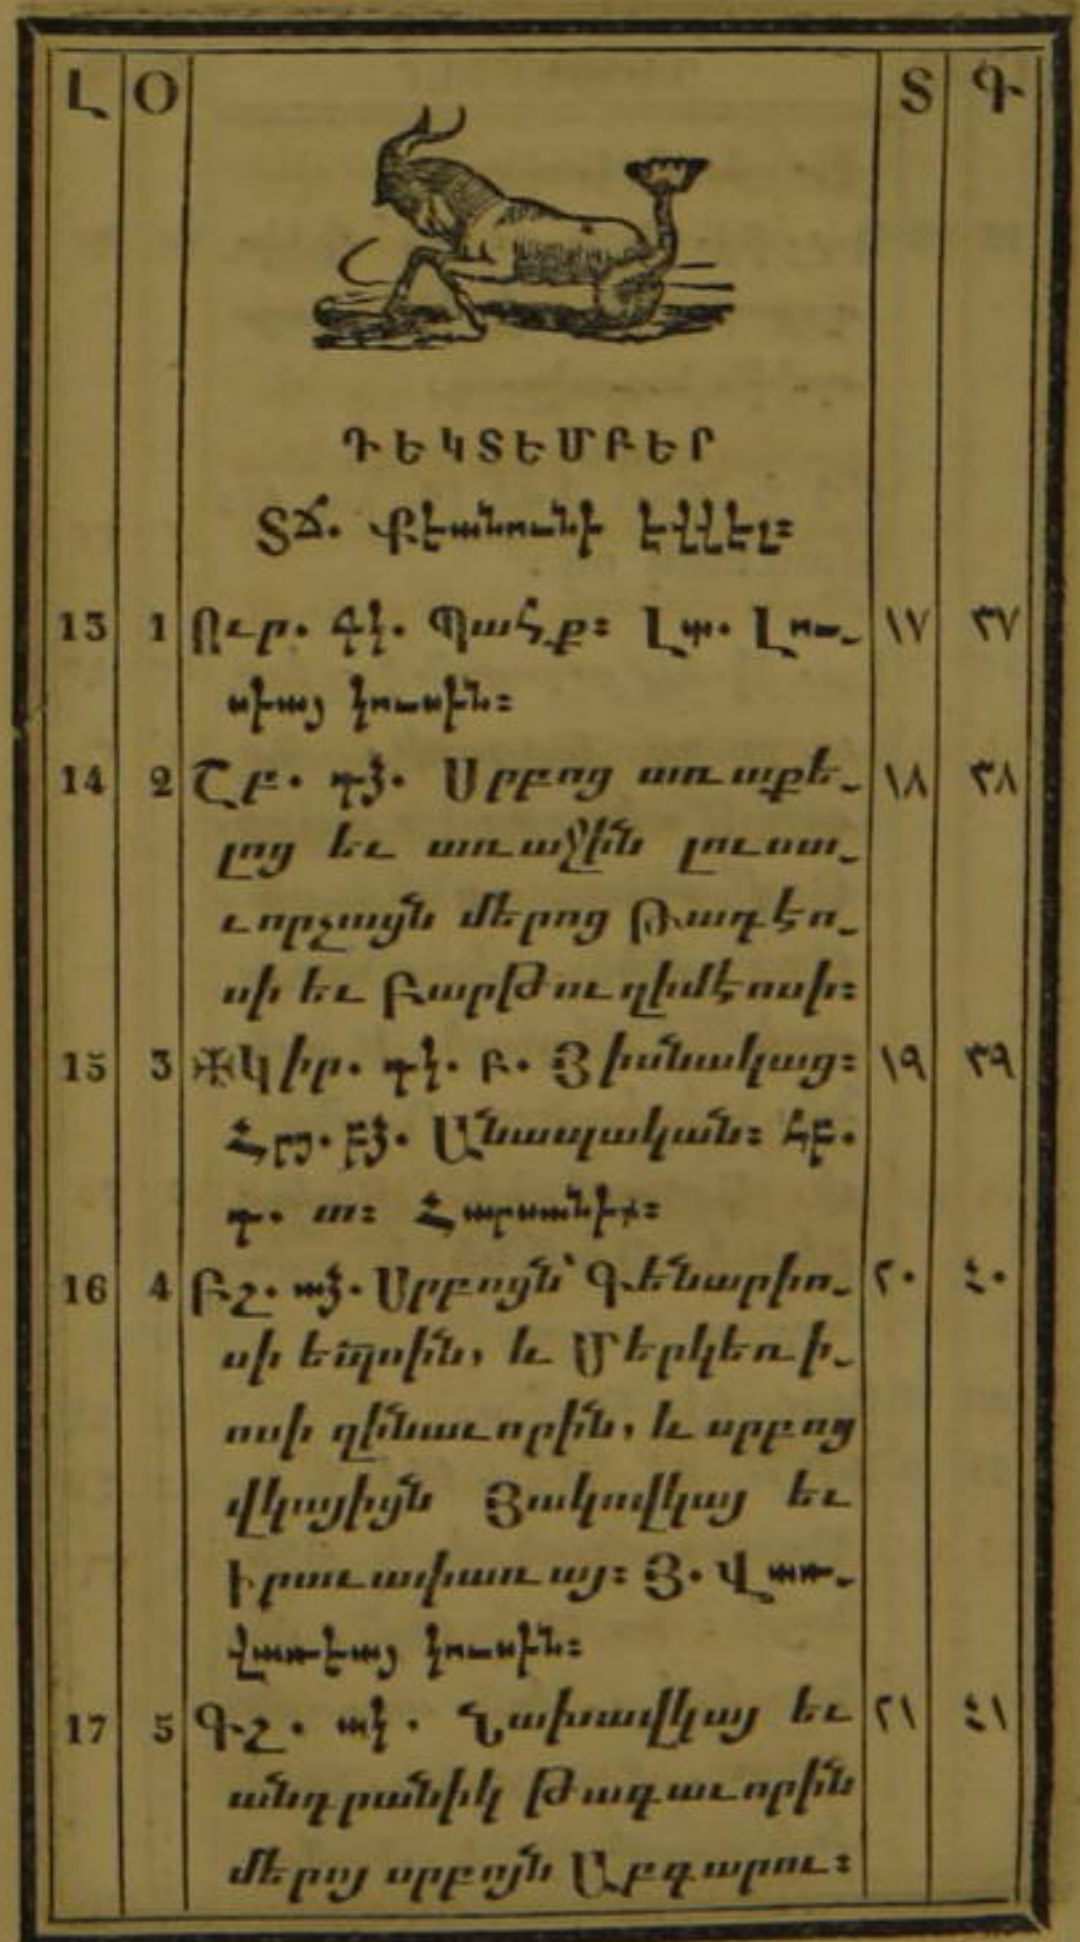 Լ Օ Տ Գ
ԴԵԿՏԵՄԲԵՐ
ՏՃ. Քէանունի էվվէլ։
13 1 Ուր. գկ. Պահք։ Լտ. Լու֊ ١٧ ٣٧
սիայ կուսին։
14 2 Շբ. դձ. Սրբոց առաքե֊ ١٨ ٣٨
լոց եւ առաջին լուսա֊
ւորչացն մերոց Թադէո֊
սի եւ Բարթուղիմէոսի։
15 3 ✠Կիր. դկ. Բ. Յիսնակաց։ ١٩ ٣٩
Հրց. բձ. Անապական։
Հարսանիք։
16 4 Բշ. աձ. Սրբոցն՝ Գենարիո֊ ٢٠ ٤٠
սի եպսին, և Մերկեռի֊
ոսի զինաւորին, և սրբոց
վկայիցն Յակովկայ եւ
Իրաւափառայ։ Յ. Վառ֊
վառէայ կուսին։
17 5 Գշ. ակ. Նախավկայ եւ ٢١ ٤١
անդրանիկ թագաւորին
մերոյ սրբոյն Աբգարու։